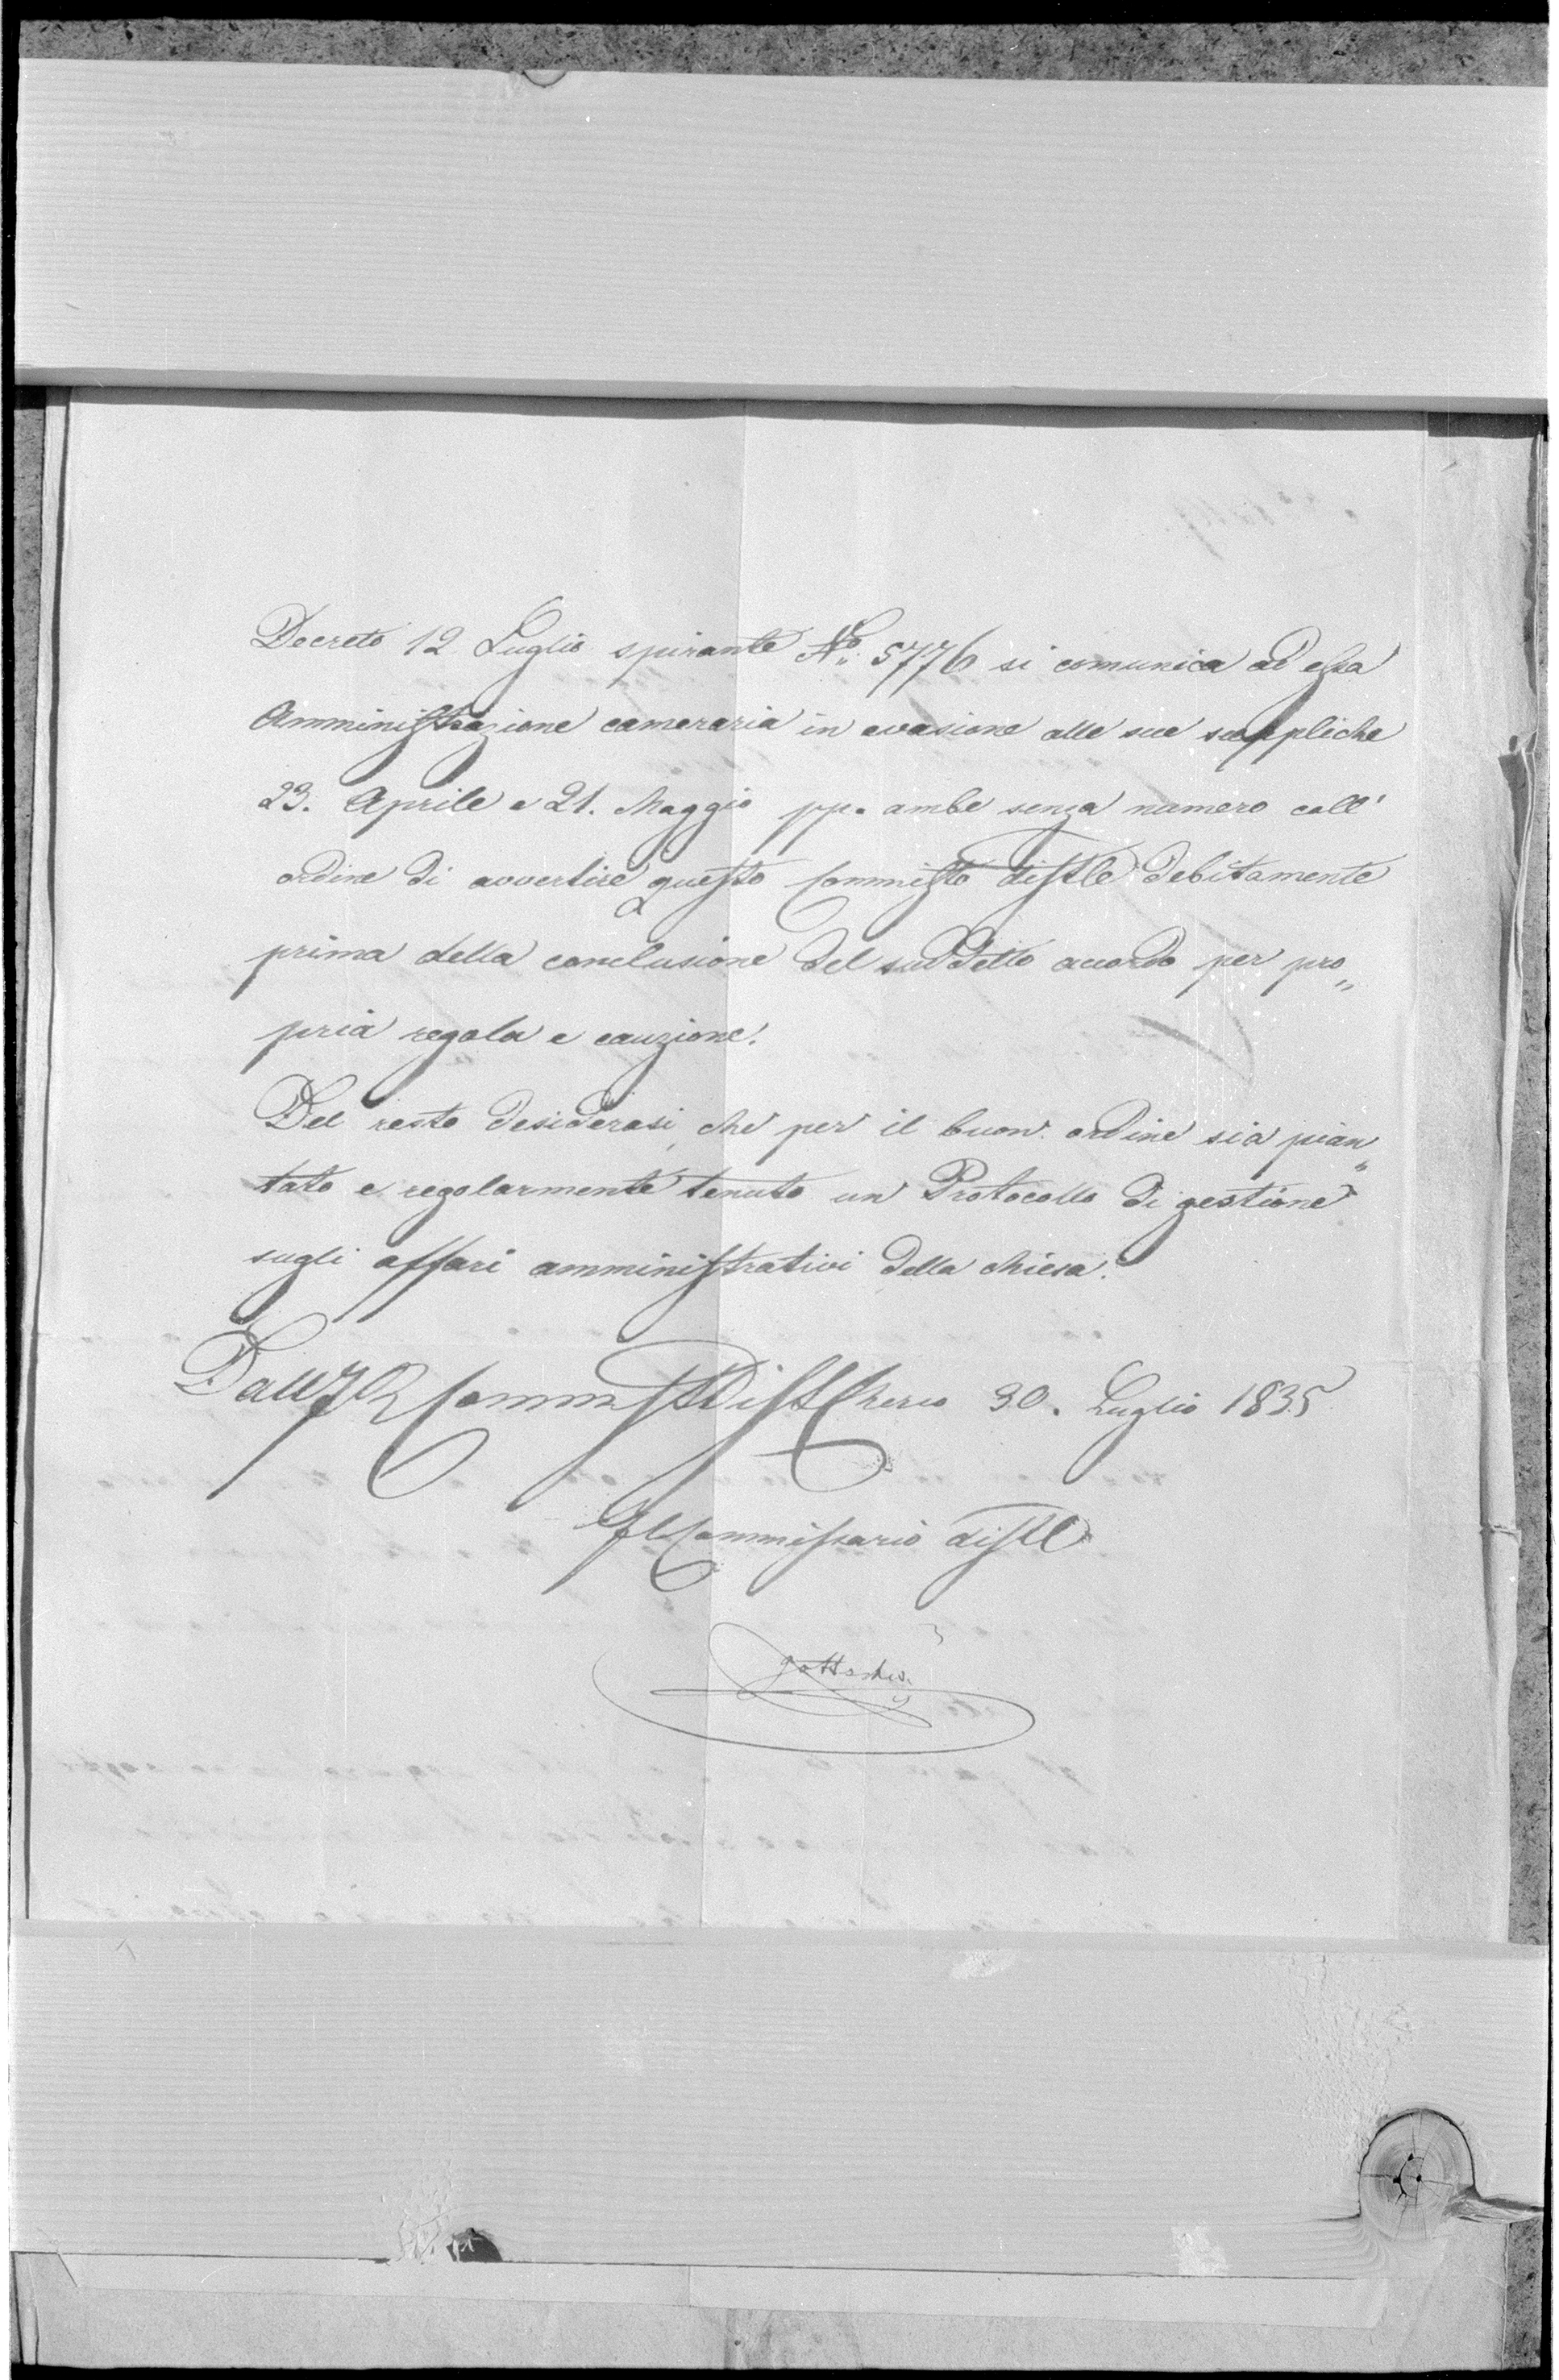 Decreto 12 Luglio spirante No 5776 si comunica ad essa
Amministrazione cameraria in evasione alle sue suppliche
23. Aprile e 21. Maggio pp. ambe senza numero coll'
ordine di avvertire questo Commissto distle debitamente
prima della conclusione del suddetto accordo per pro„
pria regola e cauzione.
Del resto desiderasi, che per il buon ordine sia pian„
tato e regolarmente tenuto un Protocollo di gestione
sugli affari amministrativi della chiesa.
Dall'I R Commissto Dist Cherso 30. Luglio 1835
Il Commissario distle